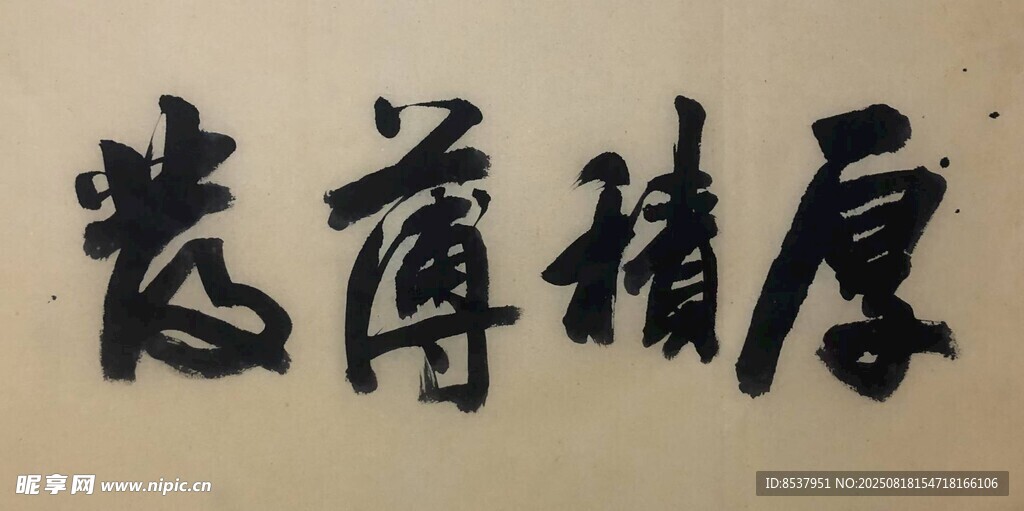 厚積薄發
昵享网 www.nipic.cn
ID:8537951 NO:20250818154718166106